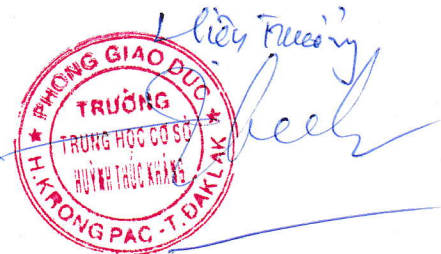 Hiệu Trưởng
PHÒNG GIÁO DỤC
TRƯỜNG
TRUNG HỌC CƠ SỞ
HUỲNH THÚC KHÁNG
H.KRÔNG PAC - T.ĐAKLAK